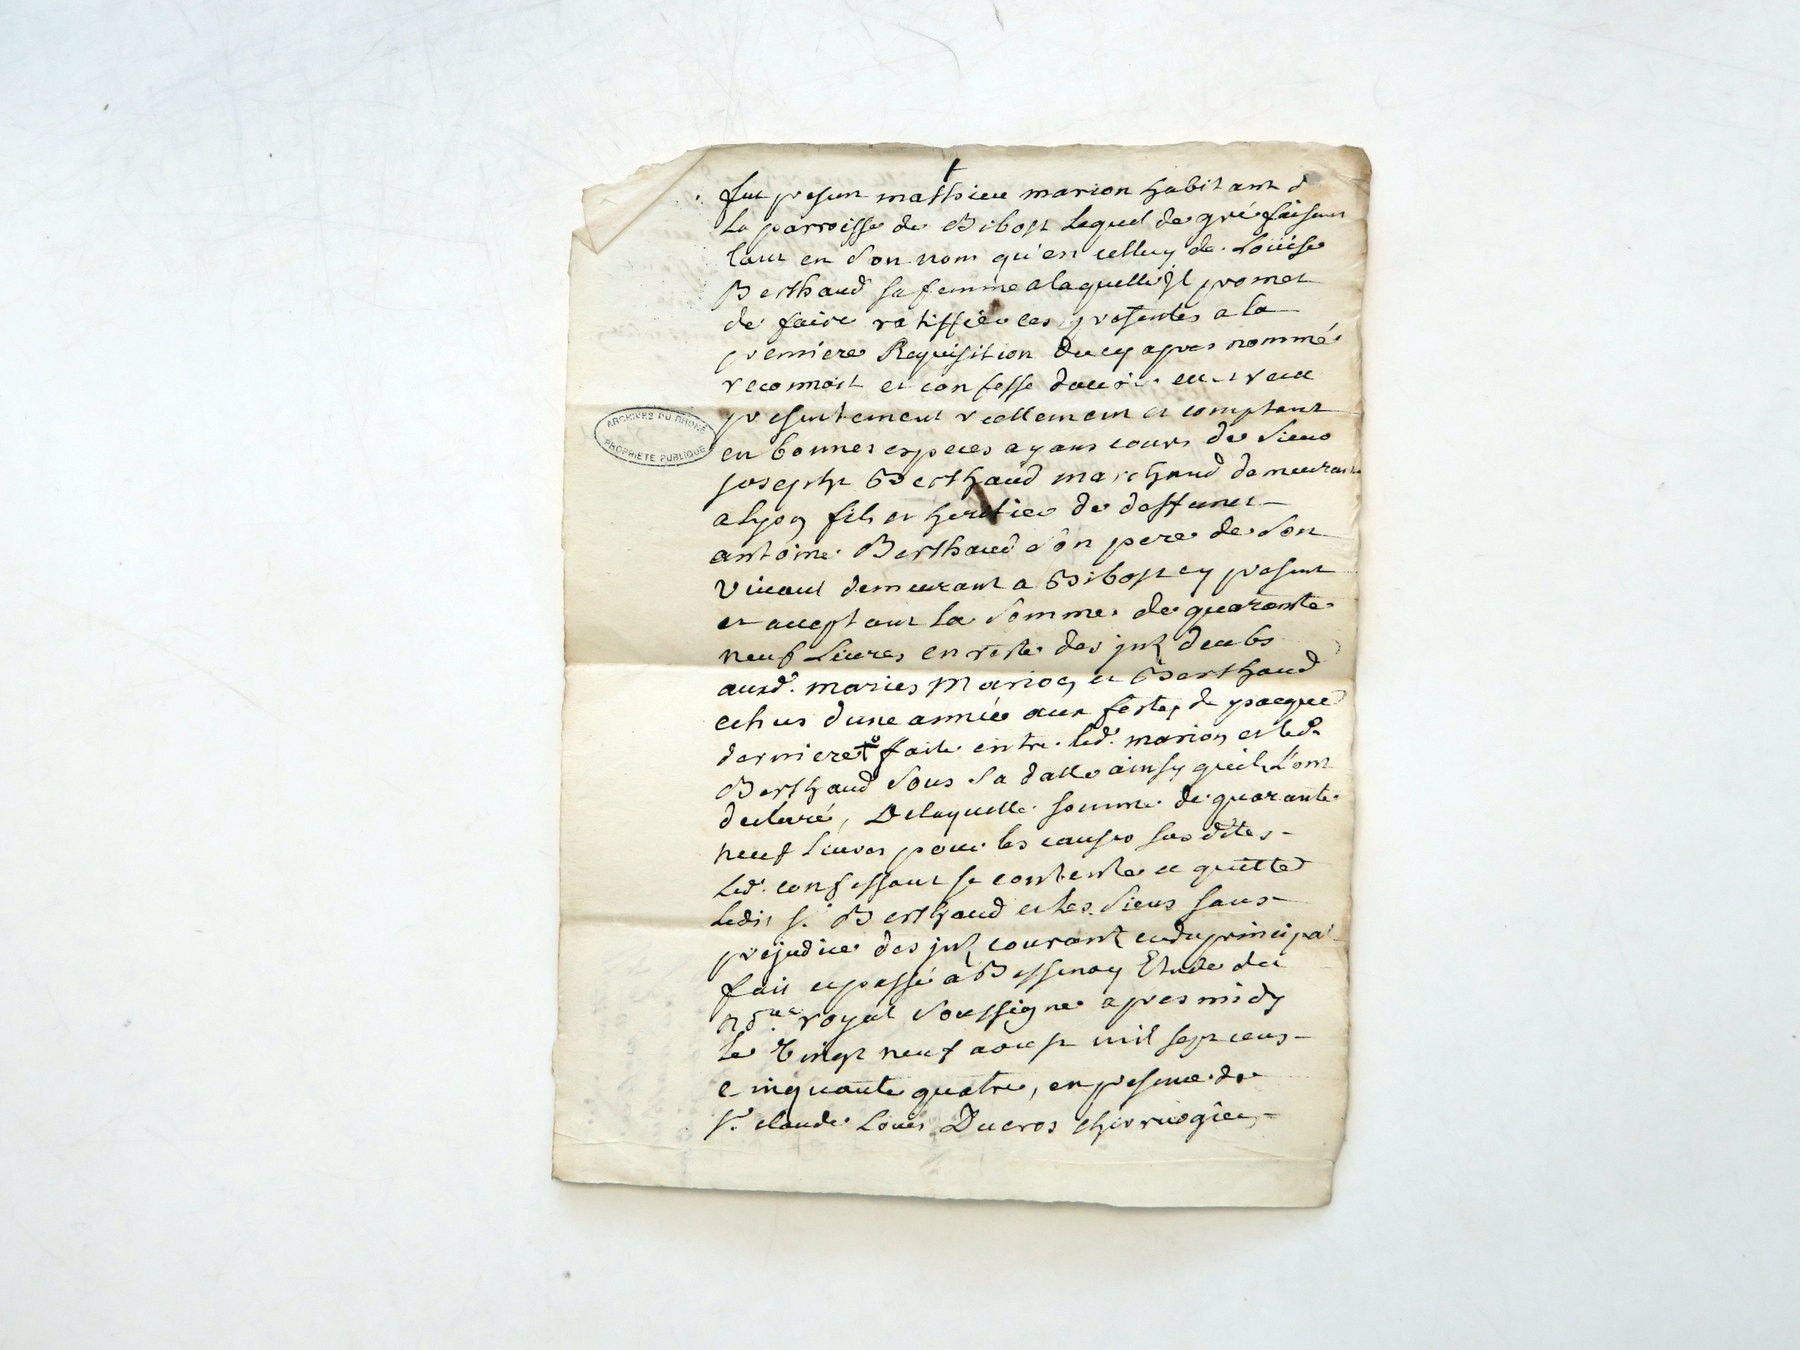 fut present mathieu marion habitant d
La parroisse de Bibost Lequel de gré faisant
tant en son nom qu'en celluy de Loüise
Berthaud sa femme a laquelle Jl promet
de faire ratiffier ces presentes a la
premiere Requisition du cy apres nommé
reconnoit et confesse avoir eu et receu
presentement reellement et comptant
en bonnes especes ayans cours de sieur
joseph Berthaud marchand demeurant
a lyon fils et heritier de deffunct
antoine Berthaud son pere de son
vivant demeurant a Bibost cy present
et acceptant la somme de quarante
neuf Livres en reste des jnts deubs
auxd. maries Marion et Berthaud
echus d'une année aux festes de pacque
derniere faite entre led. marion et led.
Berthaud sous sa datte ainsy qu'ils L'ont
declaré, De laquelle somme de quarante
neuf Livres pour les causes susdites
Led. confessant se contente et quitte
Ledit sr. Berthaud et Les siens sans
prejudice des jnts courants et du principal
fait et passé a Bessenay Etude du
nore royal soussigné apres midy
Le vingt neuf aoust mil sept cens
cinquante quatre, en presence de
sr. claude Louis Ducros chirurgien
ARCHIVES DU RHÔNE
PROPRIÉTÉ PUBLIQUE